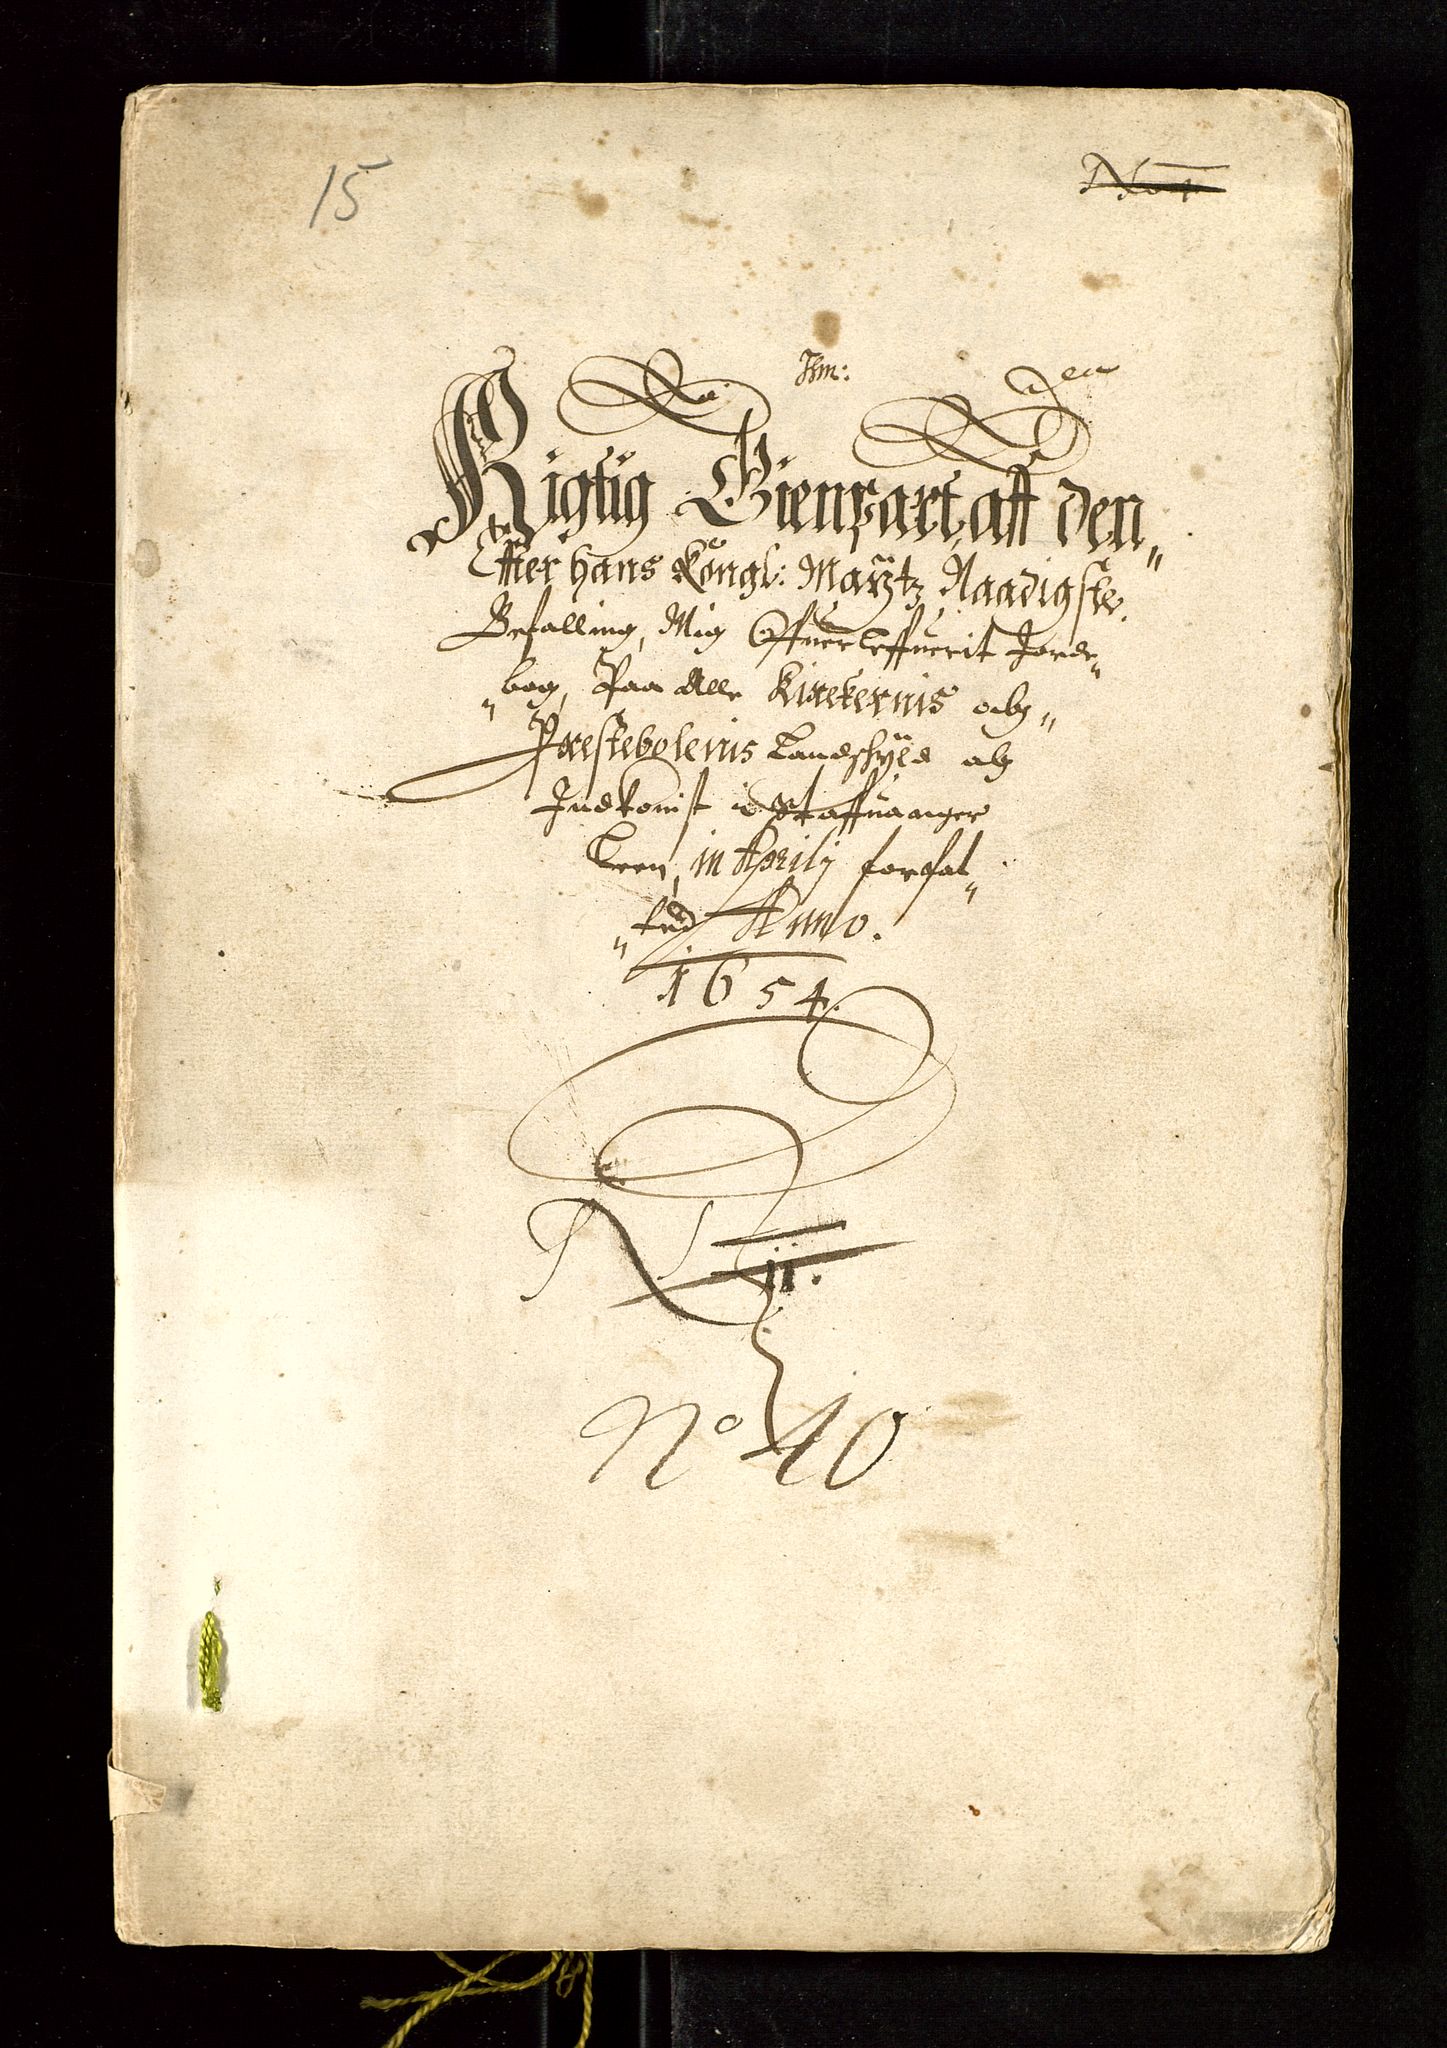 15
No 1
Rigtig Gienpart, aff den„
Effter hans Kongl: Maÿtz Naadigste
Befalling, Mig Offuerleffuerit Jorde„
„bog, Paa Alle Kirekernis och„
Præstebolenis Landschÿld och
Indkomst i Staffuanger
Leen, in Aprilj forfat„
„ted Anno.
1654.
N 11.
No 40